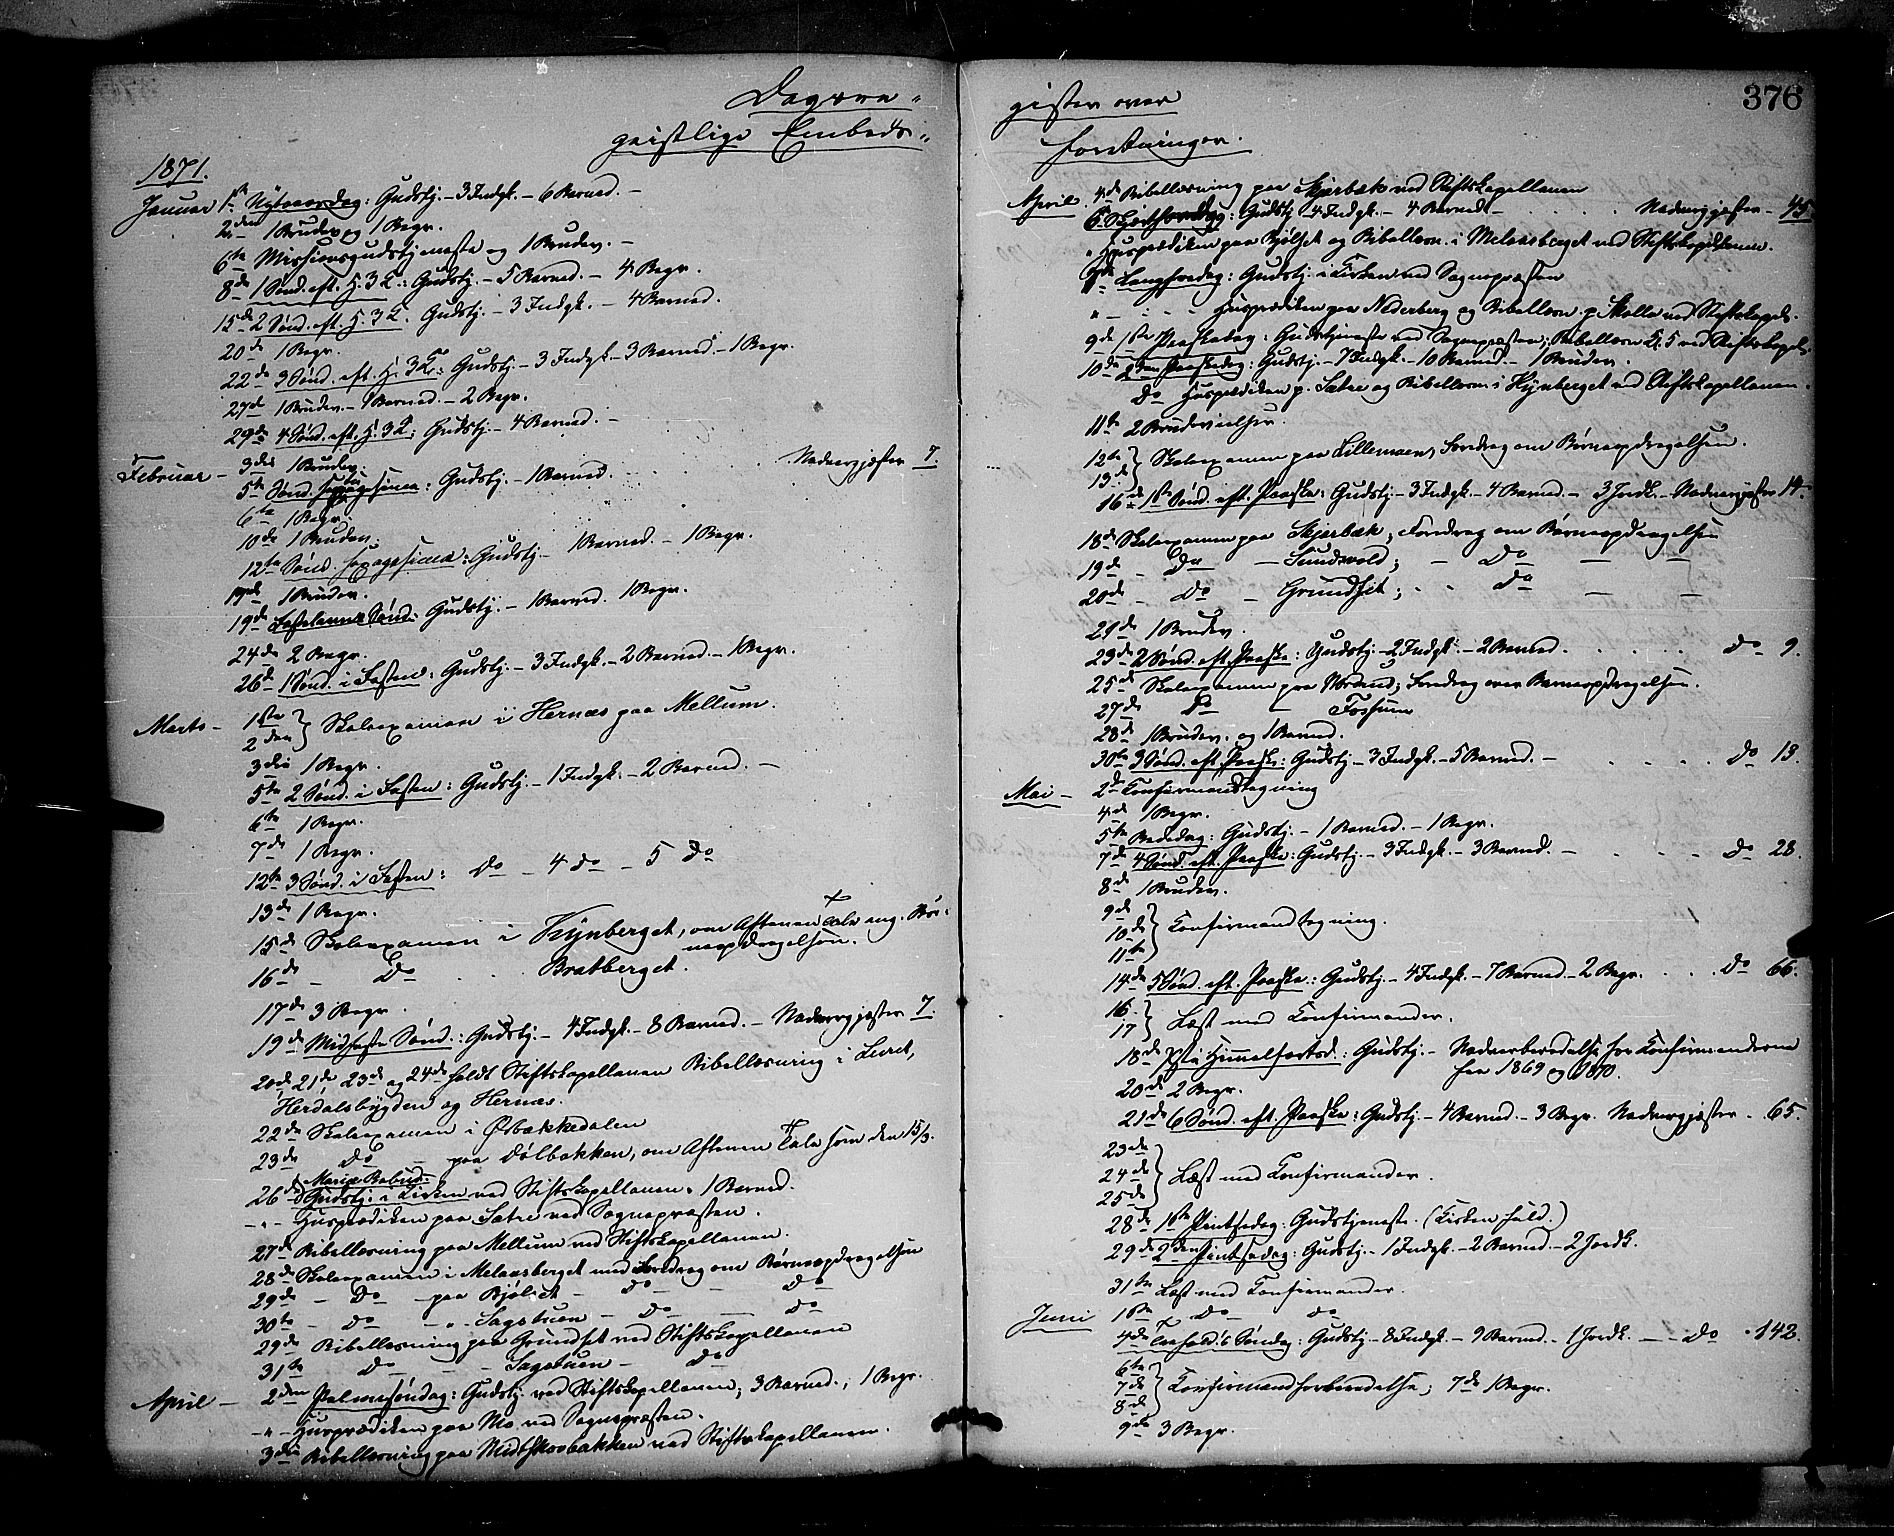 Dagsre-
geistlige Embeds-
1871.
Januar 1ste Nytaarsdag: Gudstj. - 3 Indgk. - 6 Barned. -
2den 1 Brudev. og 1 Begr.
6te Missionsgudstjeneste og 1 Brudev. -
8de 1 Sønd. eft. H. 3 K.: Gudstj. - 5 Barned. - 4 Begr.
15de 2 Sønd. eft. H. 3 K. Gudstj. - 3 Indgk. - 4 Barned.
20de 1 Begr.
22de 3 Sønd. eft. H. 3 K.: Gudstj. - 3 Indgk. - 3 Barned. - 1 Begr.
27de 1 Brudev. - 1 Barned. - 2 Begr.
29de 4 Sønd. eft. H. 3 K.: Gudstj. - 4 Barned. -
Februar - 3die 1 Brudev.
5te Sønd. Septuagesima: Gudstj. - 1 Barned. Nadvergjester 7.
6te 1 Begr.
10de 1 Brudev.
12te Sønd. Sexagesima: Gudstj. - 1 Barned. - 1 Begr.
17de 1 Brudev.
19de Fastelavns Sønd.: Gudstj. - 1 Barned. 1 Begr.
24de 2 Begr.
26de 1 Sønd. i Fasten: Gudstj. - 3 Indgk. - 2 Barned. - 1 Begr.
Marts - 1ste
2den } Skoleexamen i Hernæs paa Mellum.
3die 1 Begr.
5te 2 Sønd. i Fasten: Gudstj. - 1 Indgk. - 2 Barned. -
6te 1 Begr.
7de 1 Begr.
12te 3 Sønd. i Fasten: Do - 4 do - 5 Do
13de 1 Begr.
15de Skoleexamen i Kynberget, om Aftenen Tale ang. Bør-
neopdragelsen.
16de - Do . . Bratberget.
17de 3 Begr.
19de Midfaste Sønd.: Gudstj. - 4 Indgk. - 8 Barned. - Nadvergjester 7.
20de, 21de, 23de og 24de holdt Stiftskapellanen Bibellæsning i Luret,
Herdalsbygden og Hernæs.
22de Skoleexamen i Ørbækkedalen
23de Do - paa Dølbakken, om Aftenen Tale som den 15/3.
Mariæ Bebud.
26de Gudstj. i Kirken ved Stiftskapellanen. 1 Barned.
-"- Husprædiken paa Sætre ved Sognepræsten.
27de Bibellæsning paa Mellum ved Stiftskapellanen.
28de Skoleexamen i Melaasberget med Foredrag om Børneopdragelsen
29de - Do - paa Bjølset - Do - Do
30te - Do - " - Sagstuen - Do - Do
29de Bibellæsning paa Grundset ved Stiftskapellanen
31te Do - Sagstuen - Do
April - 2den Palmesøndag: Gudstj. ved Stiftskapellanen; 3 Barned.; 1 Begr.
-"- Husprædiken paa Mo ved Sognepræsten.
3die Bibellæsning paa Midtskovbakken ved Stiftskapellanen.
376
gister over
forretninger.
April. 4de Bibellæsning paa Skjærbæk ved Stiftskapellanen
6. Skjærthorsdag: Gudstj. 4 Indgk. - 4 Barned. - Nadvergjester - 45.
" Husprædiken paa Bjølset og Bibellæsn. i Melaasberget ved Stiftskapellanen.
7de Langfredag: Gudstj. i Kirken ved Sognepræsten
" - Husprædiken paa Nederberg og Bibellæsn. p. Skolla ved Stiftskapel.
9de 1ste Paaskedag: Gudstjeneste ved Sognepræsten; Bibellæsn. Kl. 5 ved Stiftskapel.
10de 2den Paaskedag: Gudstj. - 7 Indgk. - 10 Barned. - 1 Brudev.
Do Husprædiken p. Sætre og Bibellæsn. i Kynberget ved Stiftskapellanen.
11te 2 Brudevielser.
12te
13de } Skoleexamen paa Lillemoen, Foredrag om Børneopdragelsen.
16de 1ste Sønd. eft. Paaske: Gudstj. - 3 Indgk. - 4 Barned. - 3 Jordk. - Nadvergjester 14.
18de Skoleexamen paa Skjærbæk; Foredrag om Børneopdragelsen
19de - Do - Sundvold; - Do - -
20de - Do - Grundset; - Do - -
21de 1 Brudev.
23de 2 Sønd. eft. Paaske: Gudstj. - 2 Indgk. - 2 Barned. Do 9.
25de Skoleexamen paa Nordmo; Foredrag over Børneopdragelsen.
27de Do - Fossum
28de 1 Brudev. og 1 Barned.
30te 3 Sønd. eft. Paaske: Gudstj. - 3 Indgk. - 5 Barned. - Do 13.
Mai - 2den Confirmandtegning
4de 1 Begr.
5te Bededag: Gudstj. - 1 Barned. - 1 Begr.
7de 4 Sønd. eft. Paaske: Gudstj. - 3 Indgk. - 3 Barned. - Do 28.
8de 1 Brudev.
9de
10de
11te } Confirmandtegning.
14de 5 Sønd. eft. Paaske: Gudstj. - 4 Indgk. - 7 Barned. - 2 Begr. Do 66.
16.
17 } Læst med Confirmander.
18de Xsti Himmelfartsd.: Gudstj. - Nadverberedelse for Confirmanderne
fra 1869 og 1870.
20de 2 Begr.
21de 6 Sønd. eft. Paaske: Gudstj. - 4 Barned. - 3 Begr. Nadvergjester - 65.
23de
24de
25de } Læst med Confirmander.
28de 1ste Pintsedag: Gudstjeneste. (Kirken fuld.)
29de 2den Pintsedag: Gudstj. - 1 Indgk. - 2 Barned. - 2 Jordk.
31te Læst med Confirmander.
Juni 1ste Do - do
4de Trefold. Søndag: Gudstj. - 8 Indgk. - 9 Barned. - 1 Jordk. - Do - 142.
6te
7de
8de } Confirmandforberedelse; 7de 1 Begr.
9de 3 Begr.